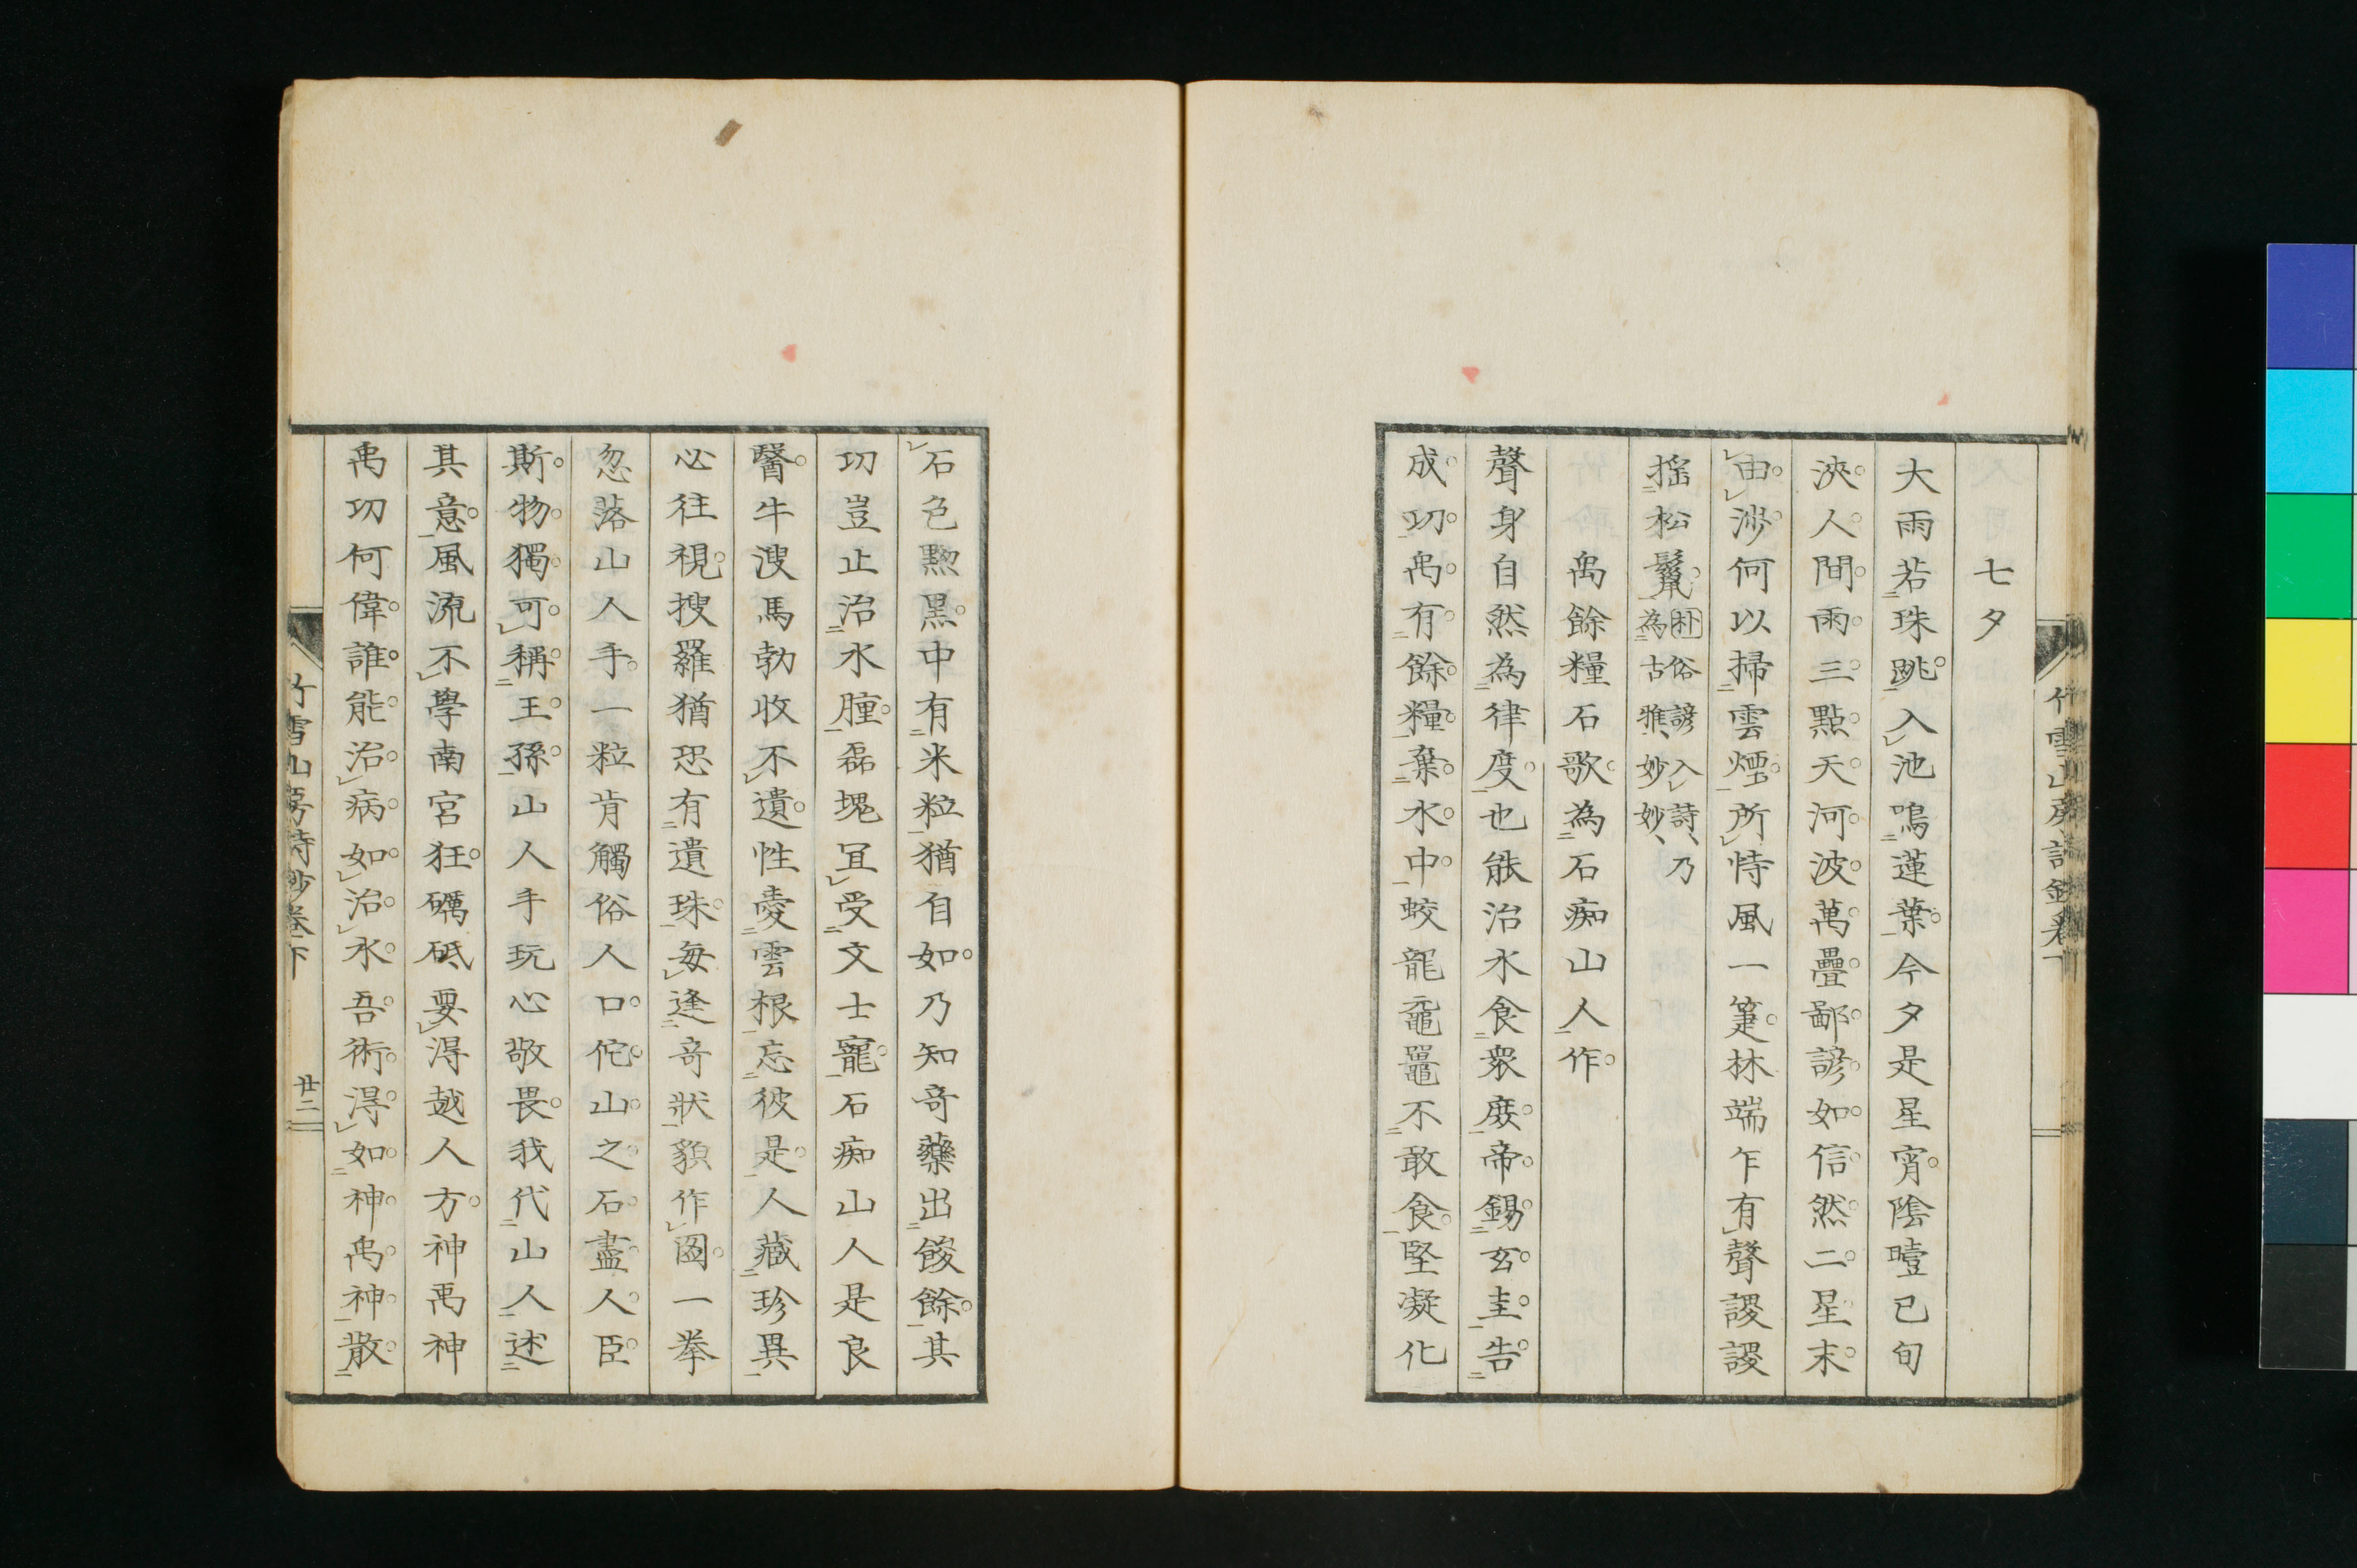 七夕
大雨若珠跳入池鳴蓮葉今夕是星宵陰曀已旬
浹人間雨三點天河波萬疊鄙諺如信然二星末
由涉何以掃雲煙所恃風一箑林端乍有聲謖謖
搖松鬣朴俗諺入詩乃
為古雅妙妙
禹餘糧石歌為石痴山人作
聲身自然為律度也能治水食衆庶帝錫玄圭告
成功禹有餘糧棄水中蛟龍黿鼉不敢食堅凝化
石色黝黒中有米粒猶自如乃知奇藥出餕餘其
功豈止治水腫磊塊冝受文士寵石痴山人是良
醫牛溲馬勃收不遺性愛雲根忘彼是人藏珍異
心往視搜羅猶恐有遺珠每逢奇狀貌作圖一拳
忽落山人手一粒肯觸俗人口佗山之石盡人臣
斯物獨可稱王孫山人手玩心敬畏我代山人述
其意風流不學南宮狂礪砥要得越人方神禹神
禹功何偉誰能治病如治水吾術得如神禹神散
竹雪山房詩鈔卷下
廿二